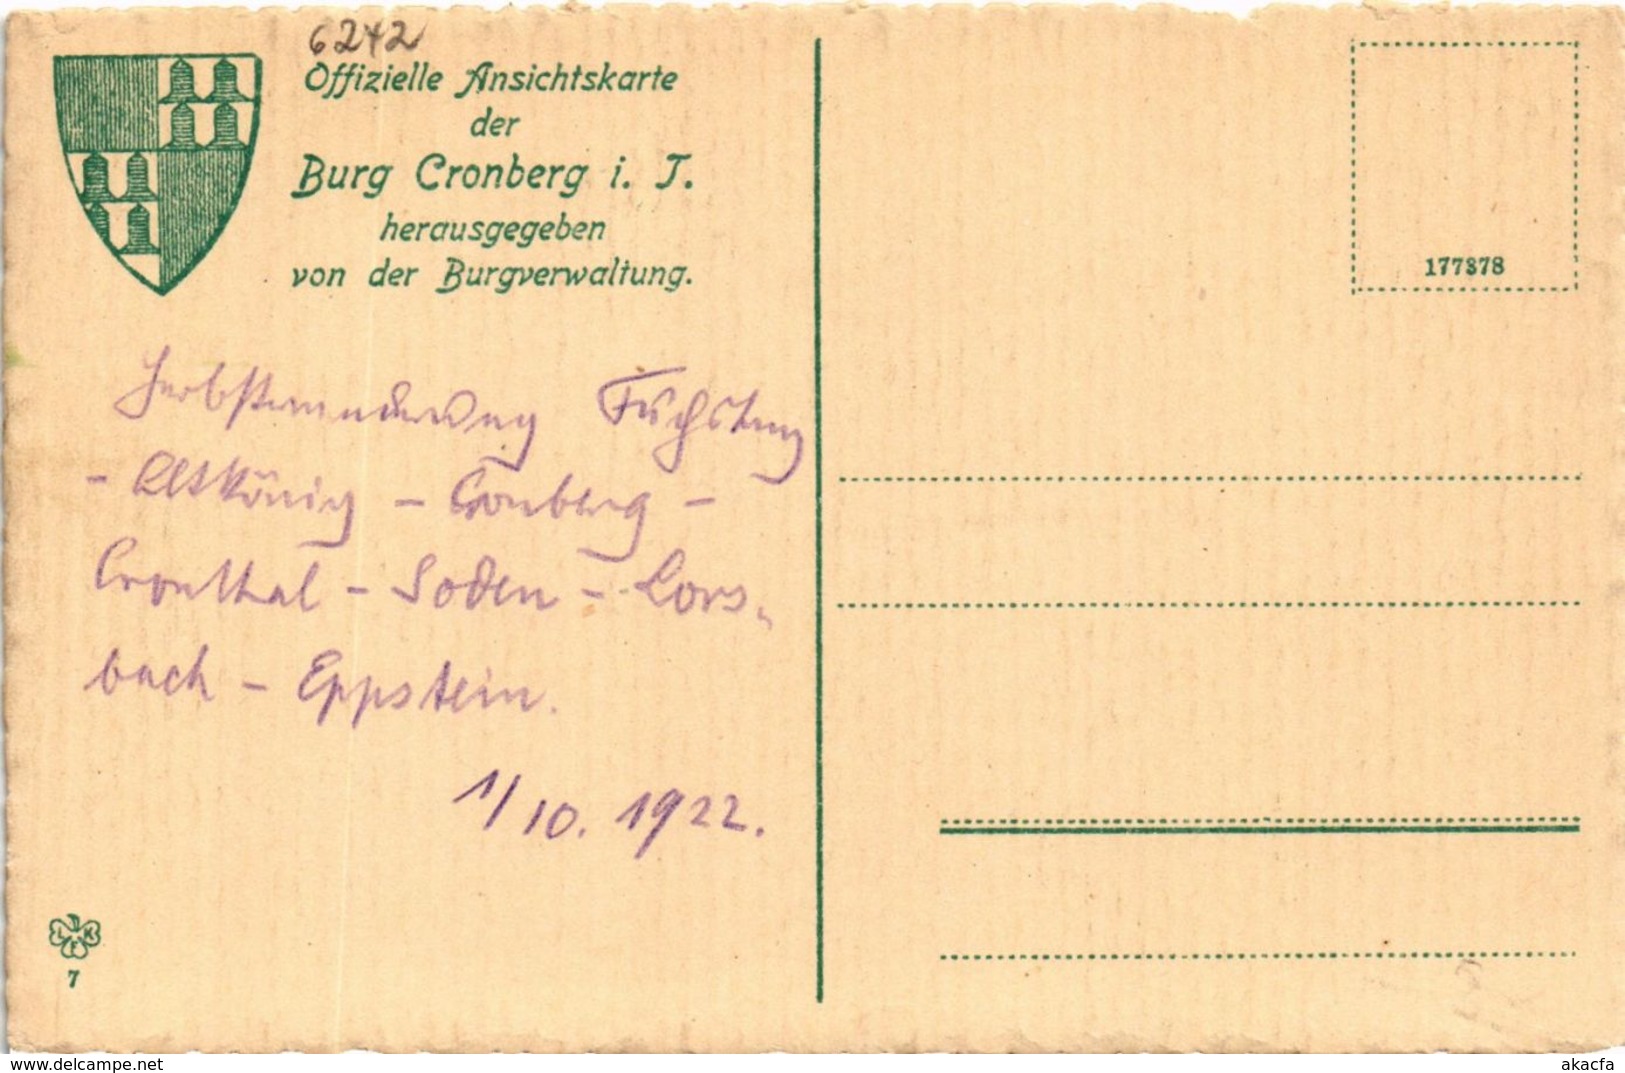 6242
Offizielle Ansichtskarte
der
Burg Cronberg i. T.
herausgegeben
von der Burgverwaltung.
177378
Herbstwanderung Fuchstanz
- Altkönig - Cronberg -
Cronthal - Soden - Lors-
bach - Eppstein.
1/10. 1922.
L K
F
7
delcampe.net
akacfa